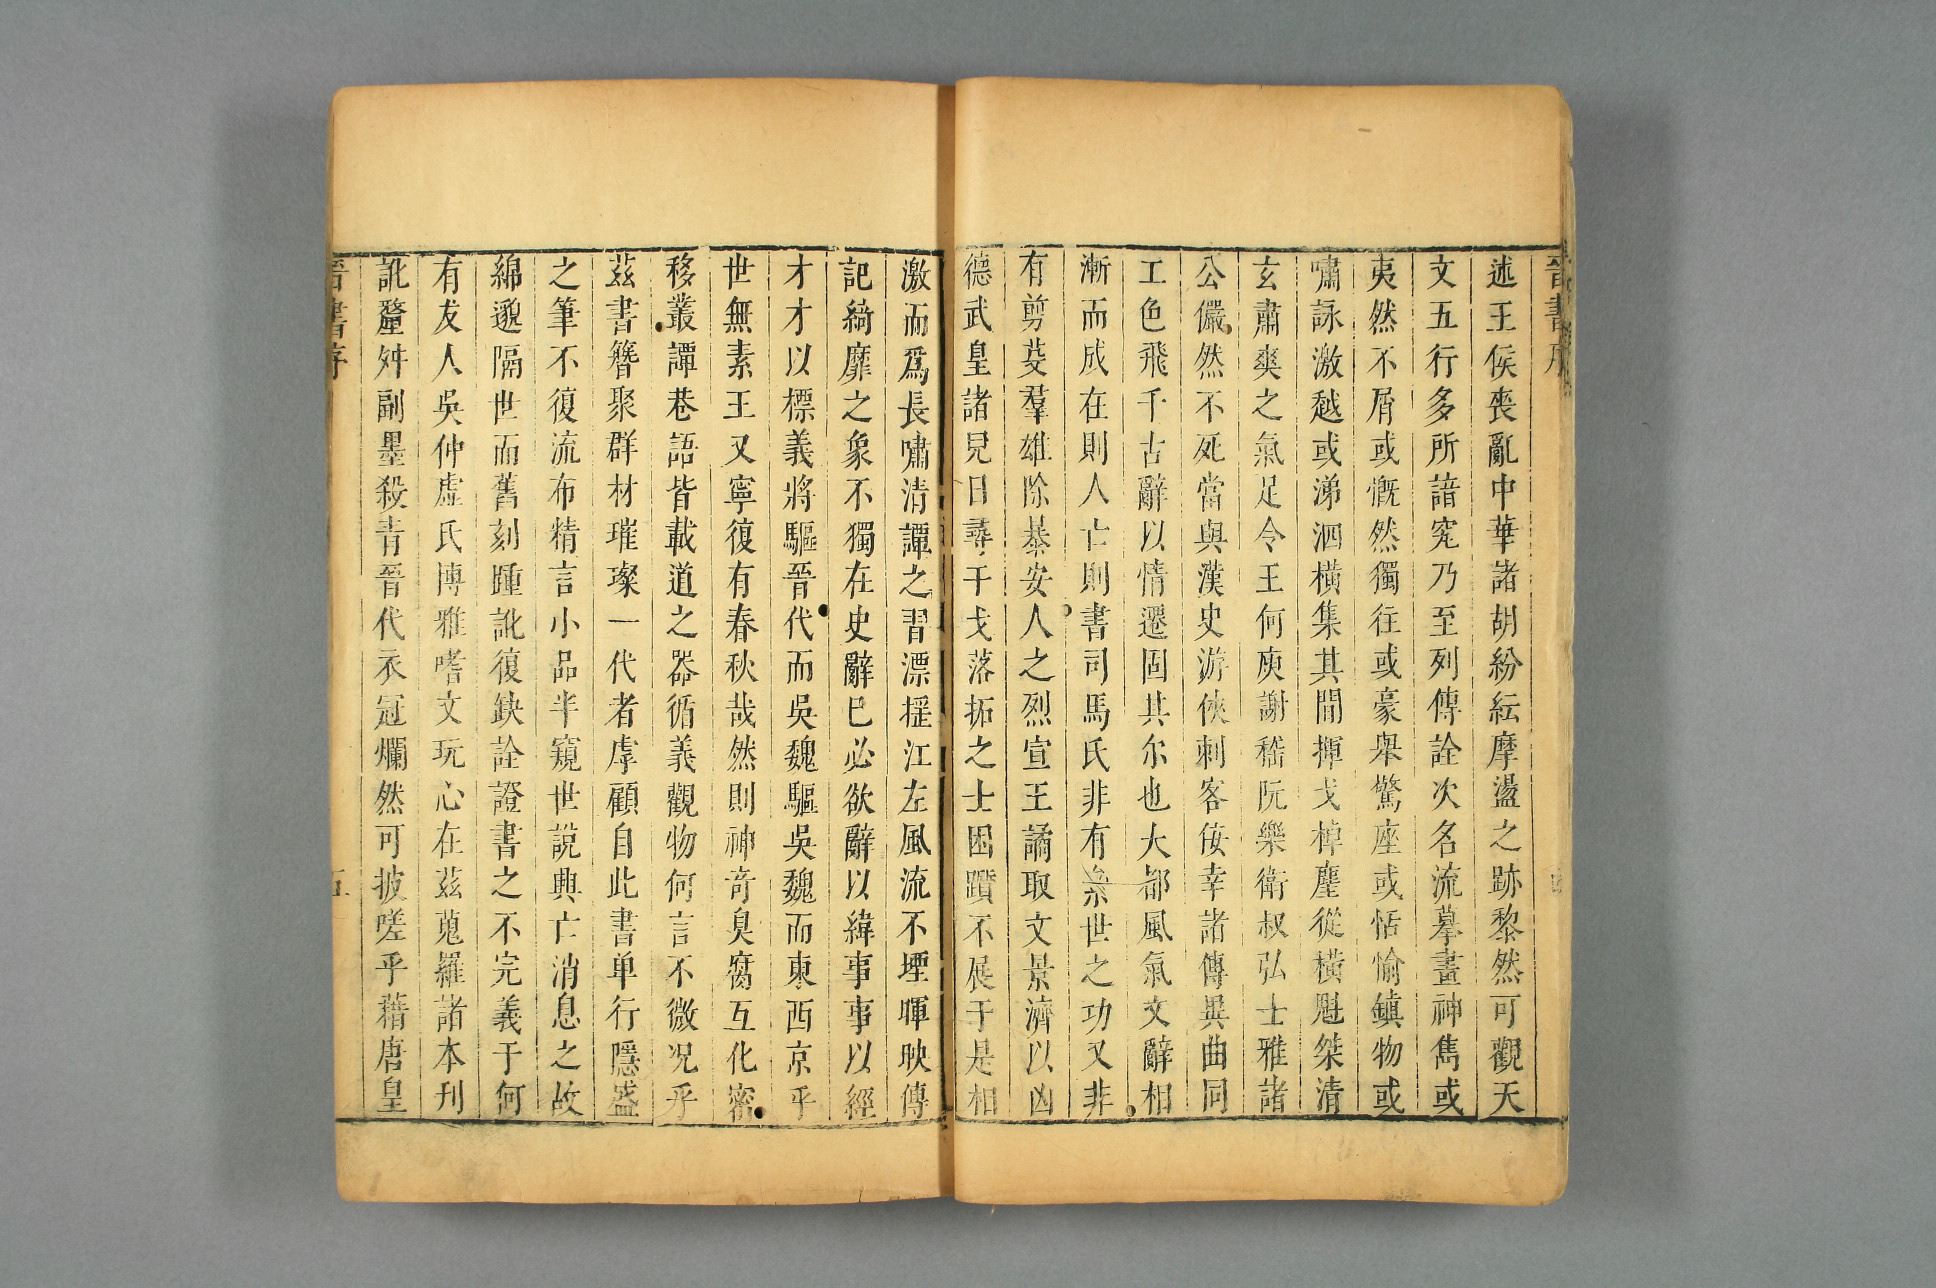 晉書序
述王侯喪亂中華諸胡紛紜摩盪之跡黎然可觀天
文五行多所諳究乃至列傳詮次名流摹畫神雋或
夷然不屑或慨然獨往或豪舉驚座或恬愉鎮物或
嘯詠激越或涕泗橫集其間揮戈棹麈從橫魁桀清
玄肅爽之氣足令王何庾謝嵇阮樂衛叔弘士雅諸
公儼然不死當與漢史游俠刺客佞幸諸傳異曲同
工色飛千古辭以情遷固其尔也大都風氣文辭相
漸而成在則人亡則書司馬氏非有桒世之功又非
有剪芟羣雄除暴安人之烈宣王譎取文景濟以凶
德武皇諸兒日尋干戈落拓之士困躓不展于是相
激而爲長嘯清譚之習漂摇江左風流不堙暉映傳
記綺靡之象不獨在史辭巳必欲辭以緯事事以經
才才以標義將驅晉代而吳魏驅吳魏而東西京乎
世無素王又寧復有春秋哉然則神竒臭腐互化密
移叢譚巷語皆載道之器循義觀物何言不微况乎
茲書簪聚群材璀璨一代者虖顧自此書单行隱盛
之筆不復流布精言小品半窺世說興亡消息之故
綿邈隔世而舊刻踵訛復缺詮證書之不完義于何
有友人吳仲虛氏博雅嗜文玩心在茲蒐羅諸本刊
訛釐舛副墨殺青晉代衣冠爛然可披嗟乎藉唐皇
晉書序
五